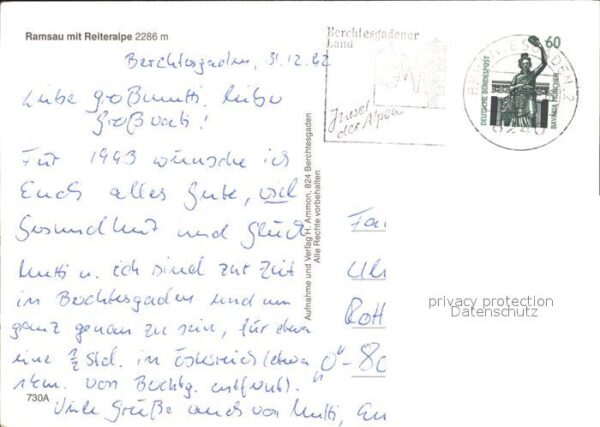 Ramsau mit Reiteralpe 2286 m
Berchtesgaden, 31.12.92
Liebe Großmutti, lieber
Großvati!
Für 1993 wünsche ich
Euch alles Gute, viel
Gesundheit und Glück
Mutti u. ich sind zur Zeit
in Berchtesgaden und um
ganz genau zu sein, für etwa
eine 1/2 Std. in Österreich (etwa
1 km. von Berchtg. entfernt).
Viele Grüße auch von Mutti, Eu
730A
Aufnahme und Verlag H. Ammon, 824 Berchtesgaden
Alle Rechte vorbehalten
Berchtesgadener
Land
Juwel
der Alpen
BERCHTESGADEN 2
8240
60
DEUTSCHE BUNDESPOST
BAVARIA MÜNCHEN
Fa
Ul
Rott
O-80
privacy protection
Datenschutz